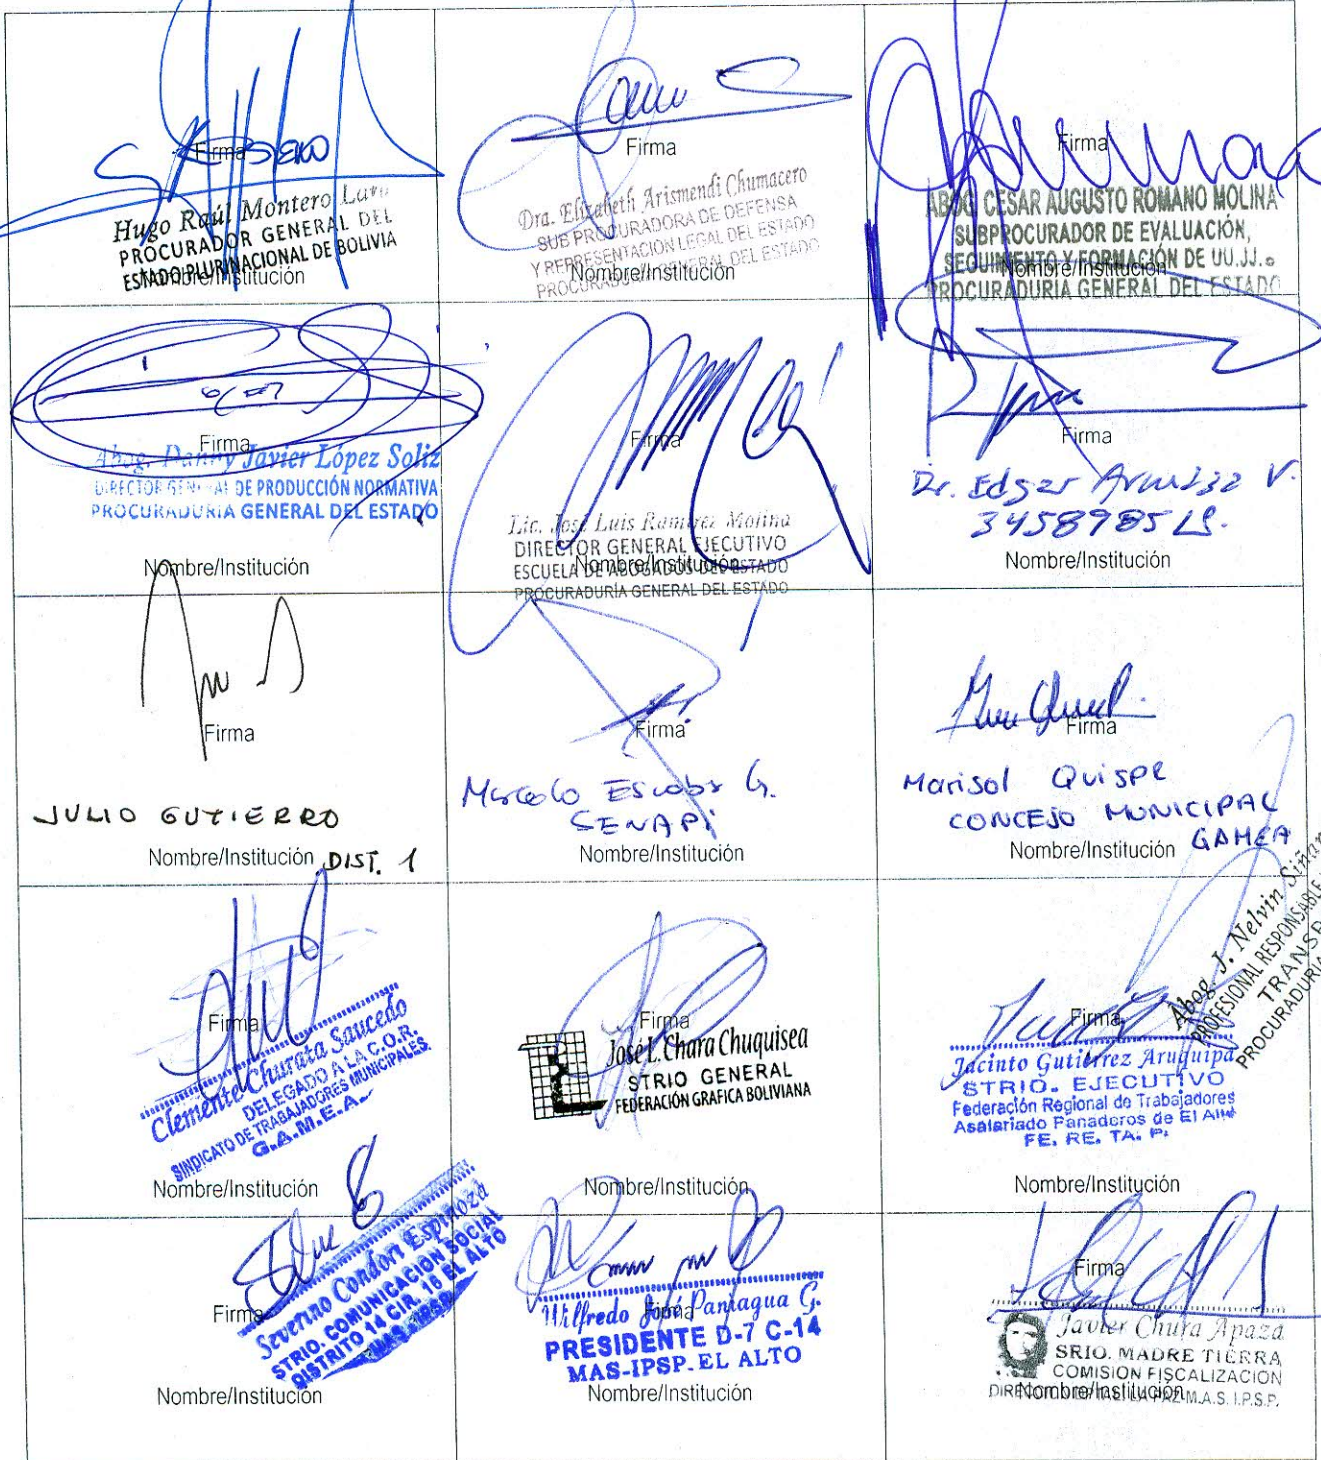 Firma
Hugo Raúl Montero Lara
PROCURADOR GENERAL DEL
ESTADO PLURINACIONAL DE BOLIVIA
Nombre/Institución
Firma
Dra. Elizabeth Arismendi Chumacero
SUB PROCURADORA DE DEFENSA
Y REPRESENTACIÓN LEGAL DEL ESTADO
PROCURADURIA GENERAL DEL ESTADO
Nombre/Institución
Firma
ABOG. CESAR AUGUSTO ROMANO MOLINA
SUBPROCURADOR DE EVALUACIÓN,
SEGUIMIENTO Y FORMACIÓN DE UU.JJ.
PROCURADURIA GENERAL DEL ESTADO
Nombre/Institución
Firma
Abog. Danny Javier López Soliz
DIRECTOR GENERAL DE PRODUCCIÓN NORMATIVA
PROCURADURÍA GENERAL DEL ESTADO
Nombre/Institución
Firma
Lic. José Luis Ramirez Molina
DIRECTOR GENERAL EJECUTIVO
ESCUELA DE ABOGADOS DEL ESTADO
PROCURADURÍA GENERAL DEL ESTADO
Nombre/Institución
Firma
Dr. Edgar V.
3458985 LP.
Nombre/Institución
Firma
JULIO GUTIERRO
Nombre/Institución
DIST. 1
Firma
Marcelo Escobar G.
SENAPI
Nombre/Institución
Firma
Marisol Quispe
CONCEJO MUNICIPAL
GAMEA
Nombre/Institución
Firma
Clemente Churata Saucedo
DELEGADO A LA C.O.R.
SINDICATO DE TRABAJADORES MUNICIPALES
G.A.M.E.A.
Nombre/Institución
Firma
José L. Chara Chuquisea
STRIO GENERAL
FEDERACIÓN GRAFICA BOLIVIANA
Nombre/Institución
Abog. J. Nelvin
PROFESIONAL RESPONSABLE
PROCURADURIA
Firma
Jacinto Gutiérrez Aruquipa
STRIO. EJECUTIVO
Federación Regional de Trabajadores
Asalariado Panaderos de El Alto
FE. RE. TA. P.
Nombre/Institución
Firma
Severino Condori Espinoza
STRIO. COMUNICACION SOCIAL
DISTRITO 14 CIR. 16 EL ALTO
MAS-IPSP
Nombre/Institución
Firma
Wilfredo José Paniagua G.
PRESIDENTE D-7 C-14
MAS-IPSP. EL ALTO
Nombre/Institución
Firma
Javier Chura Apaza
SRIO. MADRE TIERRA
COMISION FISCALIZACION
LA PAZ M.A.S. I.P.S.P.
Nombre/Institución